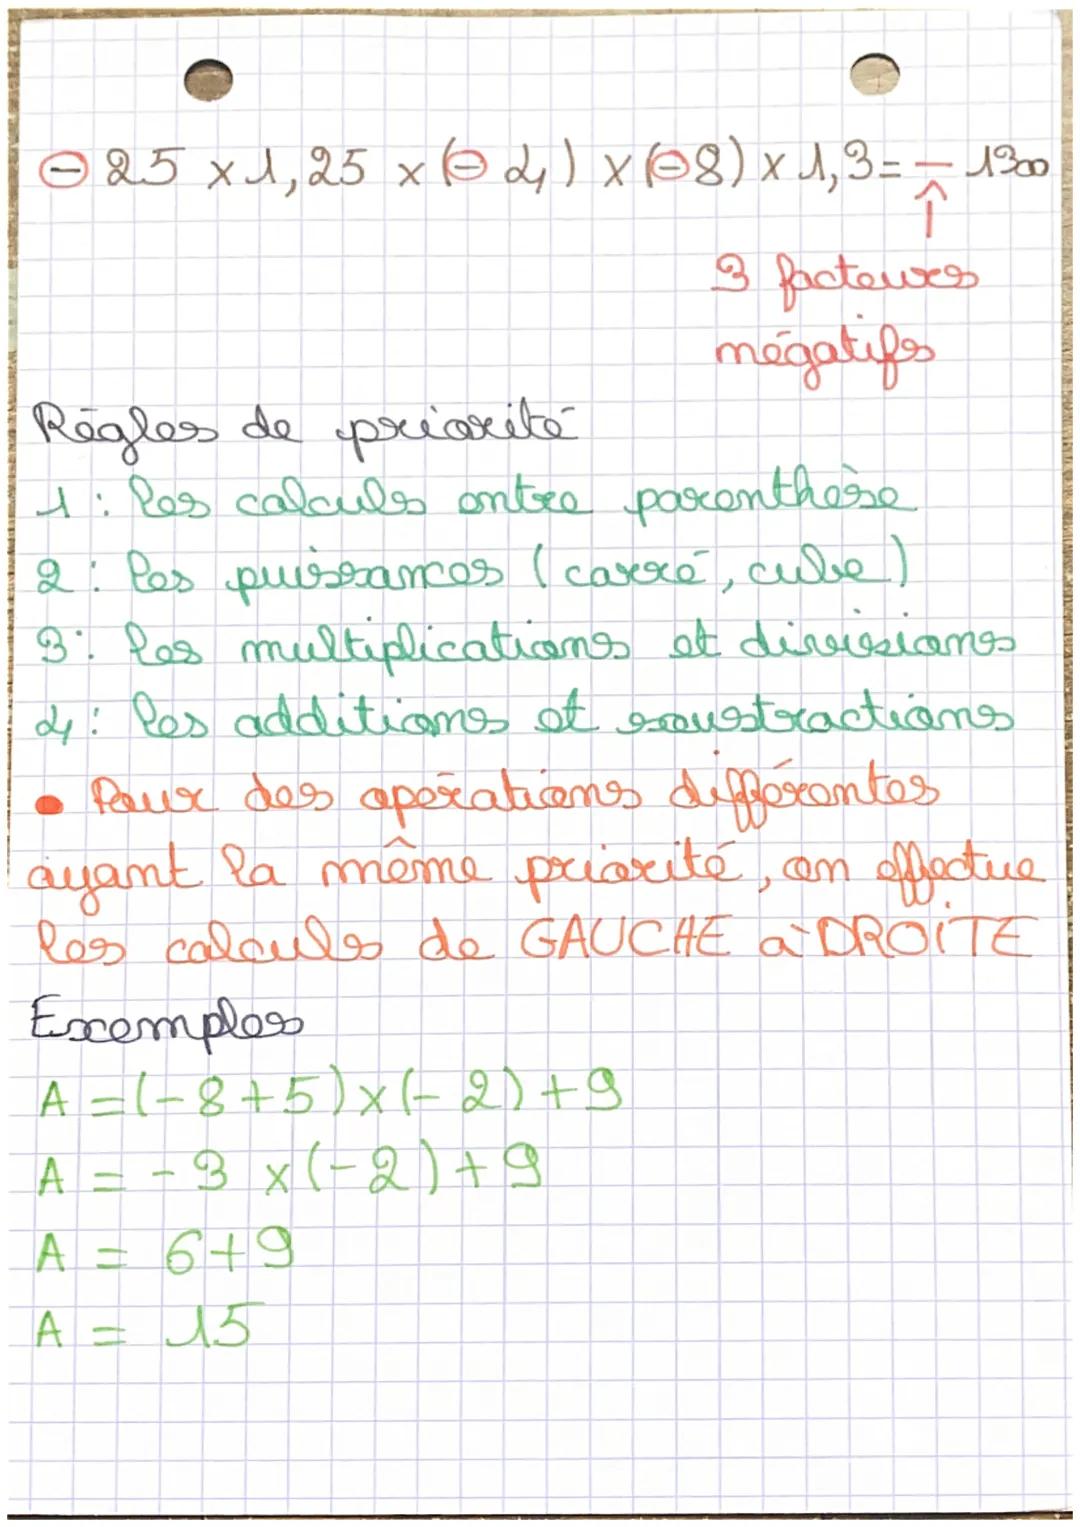 - 25 x 1,25 x (- 4) x (-8) x 1,3 = - 1300
↑
3 facteurs
négatifs
Règles de priorité
1 : les calculs entre parenthèse
2 : les puissances (carré, cube)
3 : les multiplications et divisions
4 : les additions et soustractions
• Pour des opérations différentes
ayant la même priorité, on effectue
les calculs de GAUCHE à DROITE
Exemples
A = (-8+5) x (-2) + 9
A = -3 x (-2) + 9
A = 6+9
A = 15